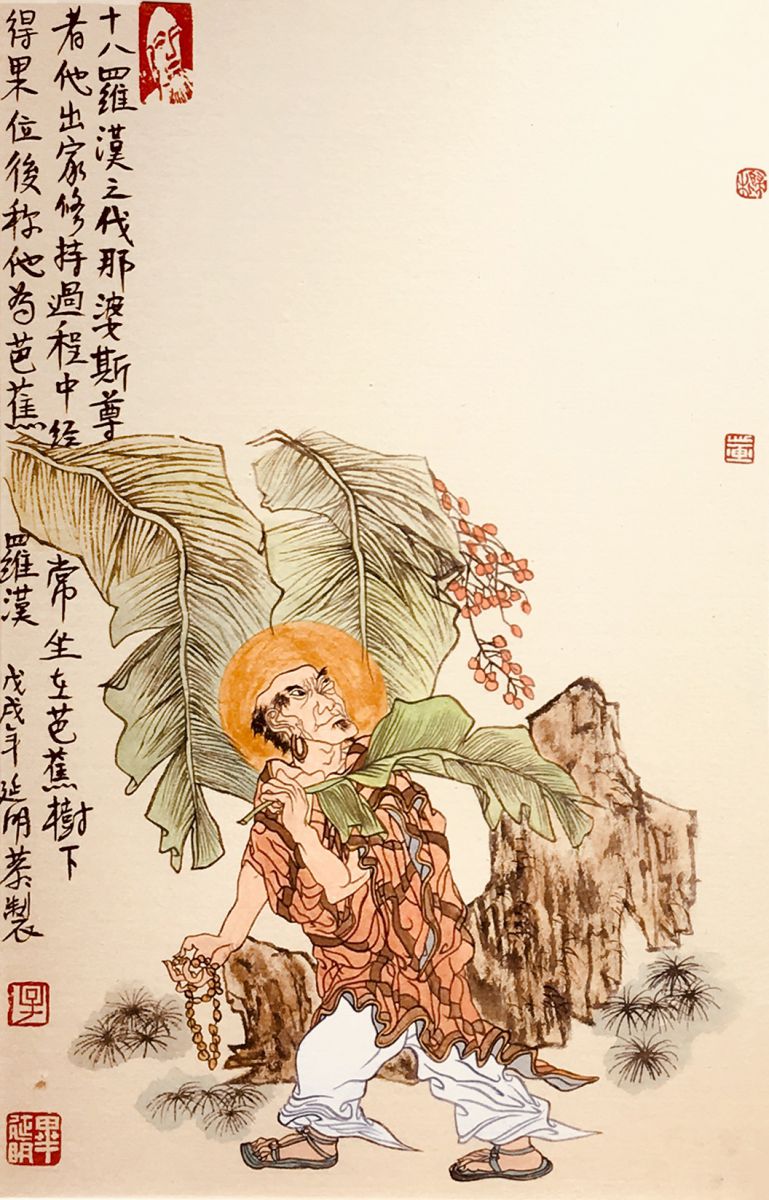 十八羅漢之伐那婆斯尊
者他出家修持過程中经常坐在芭蕉樹下
得果位後称他为芭蕉羅漢 戊戌年延明恭製
畢延明